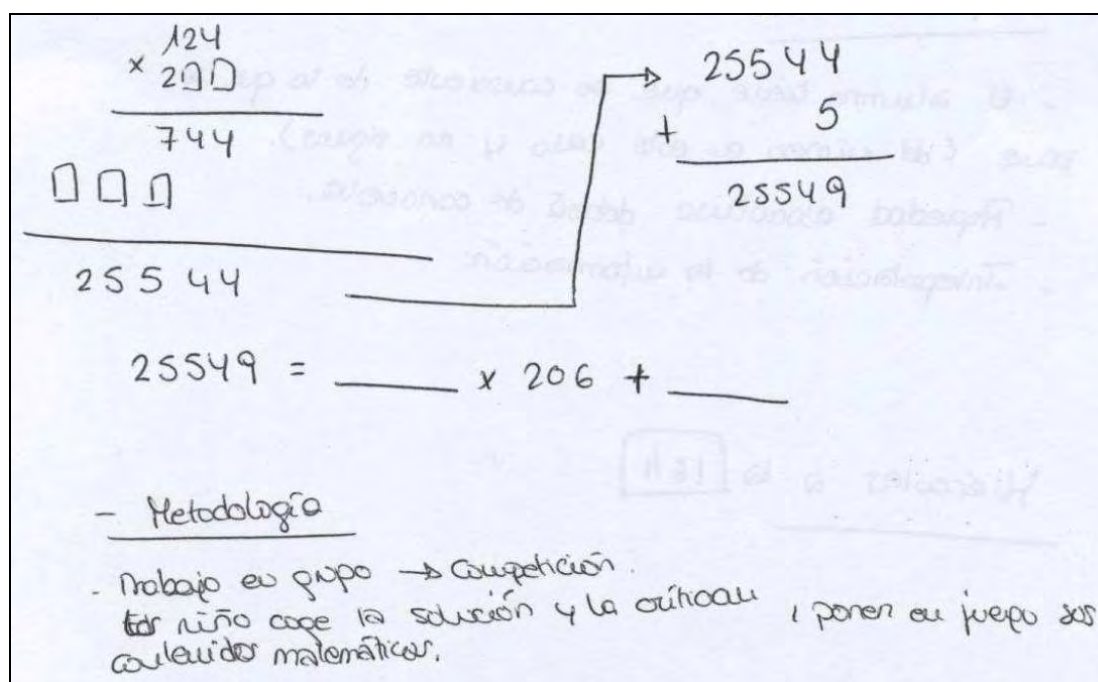 124
× 2▯▯
744
▯▯▯
25544
25544
+ 5
25549
25549 = ____ x 206 + ____
- Metodología
- Trabajo en grupo → Competición.
niño coge la solución y la critican, ponen en juego sus
contenidos matemáticos.